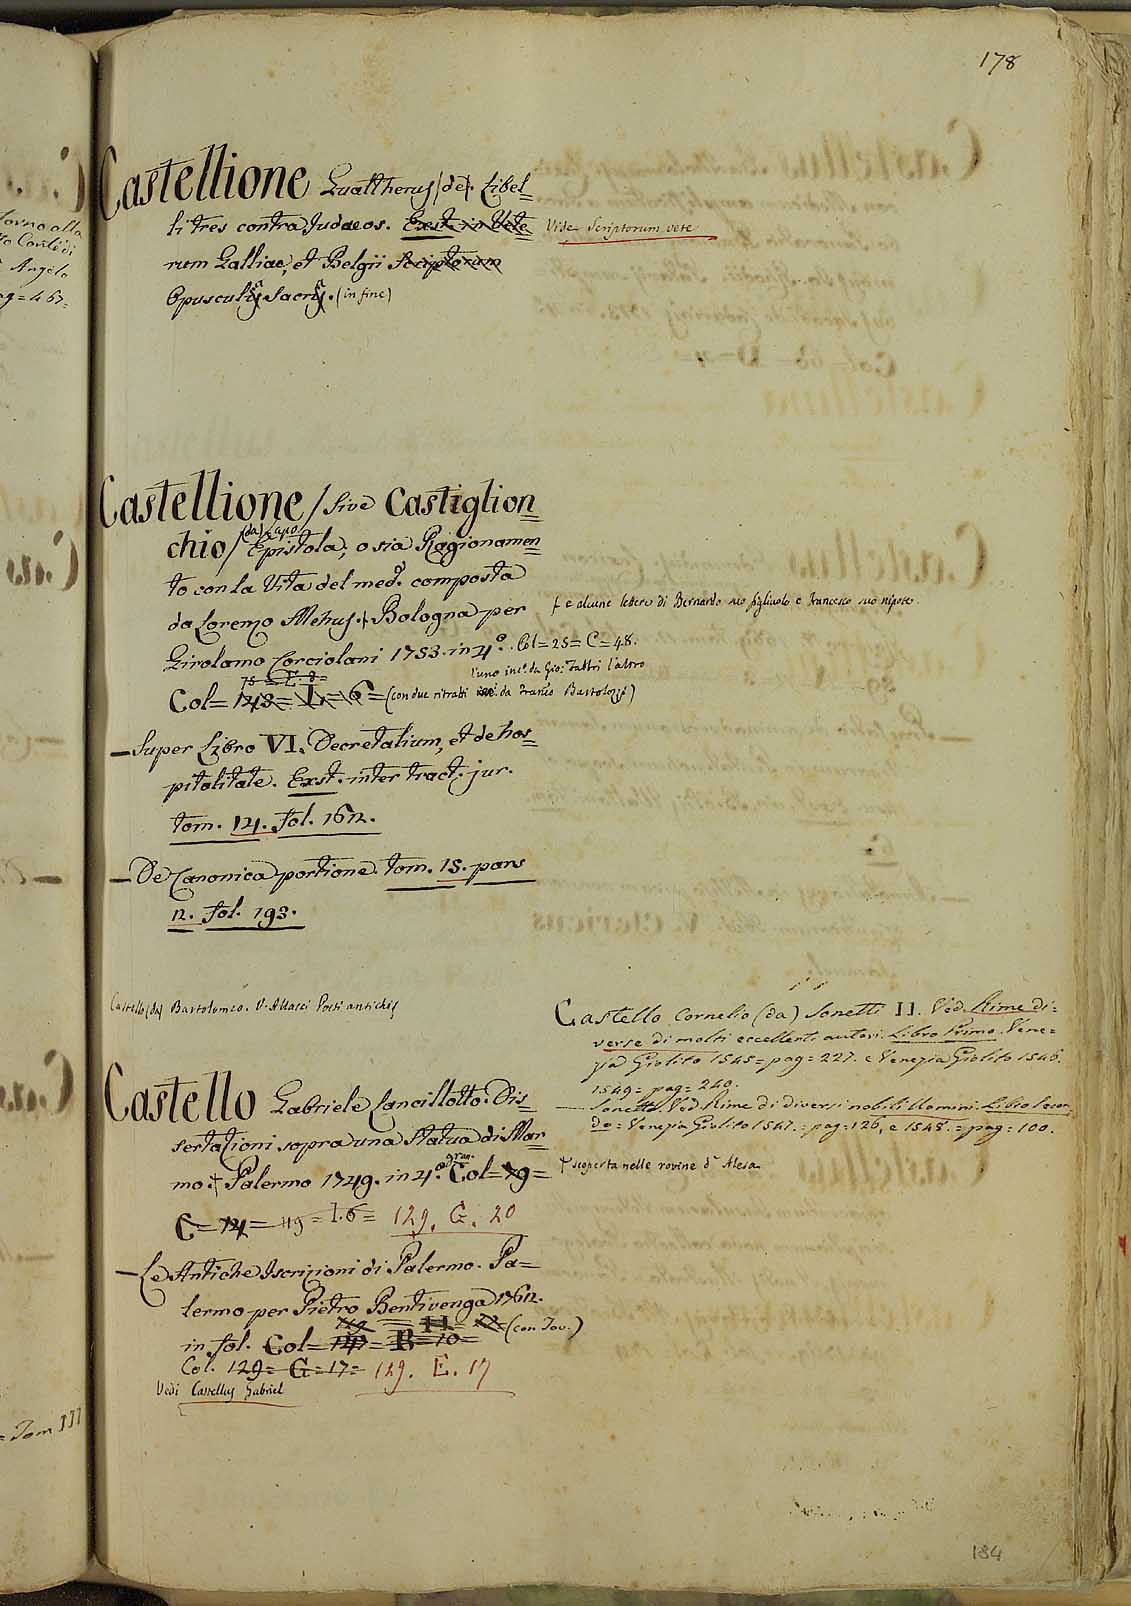 178
Castellione Gualtherus (de). Libel=
li tres contra Judaeos. Exst. in Vete
Vide Scriptorum vete
rum Galliae, et Belgii Scriptorum
Opusculis Sacris. (in fine)
Castellione / sive Castiglion=
chio / (da) Lapo
Epistola, o sia Ragionamen=
to con la Vita del med.º composta
da Lorenzo Mehus. + Bologna per
+ e alcune lettere di Bernardo suo figliuolo e Francesco suo nipote.
Girolamo Corciolani 1753. in 4º. Col = 25 = C = 48.
75 = E. 8 =
l'uno inc.º da Gio: Fabbri l'altro
Col = 143 = L = 6 = (con due ritratti da Franc.º Bartolozzi)
— Super Libro VI. Decretalium, et de hos=
pitalitate. Exst. inter tract. jur.
tom. 14. fol. 162.
— De Canonica portione. tom. 15. pars
2. fol. 193.
Castello (da) Bartolomeo. V. Allacci Poeti antichi
Castello Cornelio (da) Sonetti II. Ved. Rime di=
verse di molti eccellenti autori. Libro Primo. Vene=
zia Giolito 1545 = pag = 227. e Venezia Giolito 1546.
1549 = pag = 240.
— Sonetto. Ved. Rime di diversi nobili Uomini. Libro Secon
do = Venezia Giolito 1547. = pag = 126, e 1548. = pag = 100.
Castello Gabriele Lancillotto. Dis=
sertazioni sopra una Statua di Mar=
mo. + Palermo 1749. in 4º. gran. Col = 79 =
+ scoperta nelle rovine d' Alesa
C = 14 = 119 = I. 6 = 129. G. 20
— Le Antiche Iscrizioni di Palermo. Pa=
lermo per Pietro Bentivenga 1762.
in fol. Col = B = 10 = (con Tav.)
Col. 129 = G = 17 = 129. E. 17
Vedi Castellus Gabriel
184
Torno alla
Angelo
ag = 467 =
= Tom III